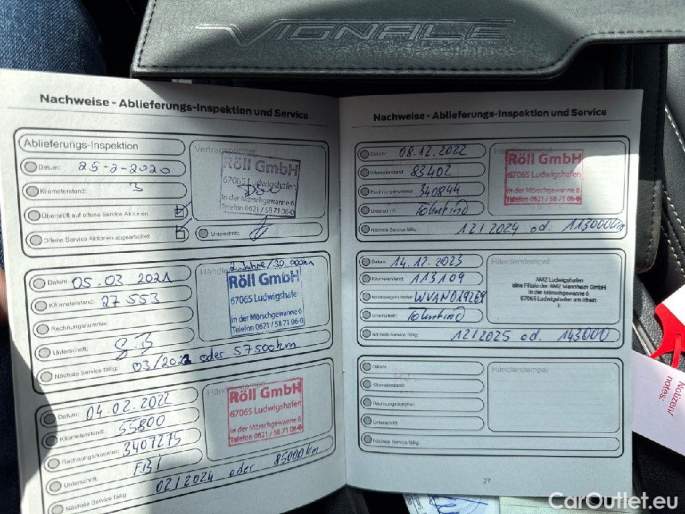 VIGNALE
Nachweise - Ablieferungs-Inspektion und Service
Ablieferungs-Inspektion
Datum: 25-2-2020
Kilometerstand: 3
Überprüft auf offene Service Aktionen
Offene Service Aktionen abgearbeitet
Unterschrift:
Röll GmbH
67065 Ludwigshafen
In der Mörschgewanne 6
Telefon 0621 / 58 71 06-0
Datum: 05.03 2021
Kilometerstand: 27 553
Rechnungsnummer:
Unterschrift:
Nächste Service fällig: 03/2022 oder 57500km
2 Jahre/30.000km
Röll GmbH
67065 Ludwigshafen
In der Mörschgewanne 6
Telefon 0621 / 58 71 06-0
Datum: 04.02.2022
Kilometerstand: 55800
Rechnungsnummer: 3407275
Unterschrift:
Nächste Service fällig: 02/2024 oder 85000km
Röll GmbH
67065 Ludwigshafen
In der Mörschgewanne 6
Telefon 0621 / 58 71 06-0
Nachweise - Ablieferungs-Inspektion und Service
Datum: 08.12.2022
Kilometerstand: 83402
Rechnungsnummer: 340844
Unterschrift:
Nächste Service fällig: 12/2024 od. 113000
Röll GmbH
67065 Ludwigshafen
In der Mörschgewanne 6
Telefon 0621 / 58 71 06-0
Datum: 14.12.2023
Kilometerstand: 113109
Rechnungsnummer:
Unterschrift:
Nächste Service fällig: 12/2025 od. 143000
Händlerstempel
Ludwigshafen
eine Filiale der Mannheim GmbH
In der Mörschgewanne 6
67065 Ludwigshafen am Rhein
Datum:
Kilometerstand:
Rechnungsnummer:
Unterschrift:
Nächste Service fällig:
Händlerstempel
27
Notizen/
notes:
CarOutlet.eu